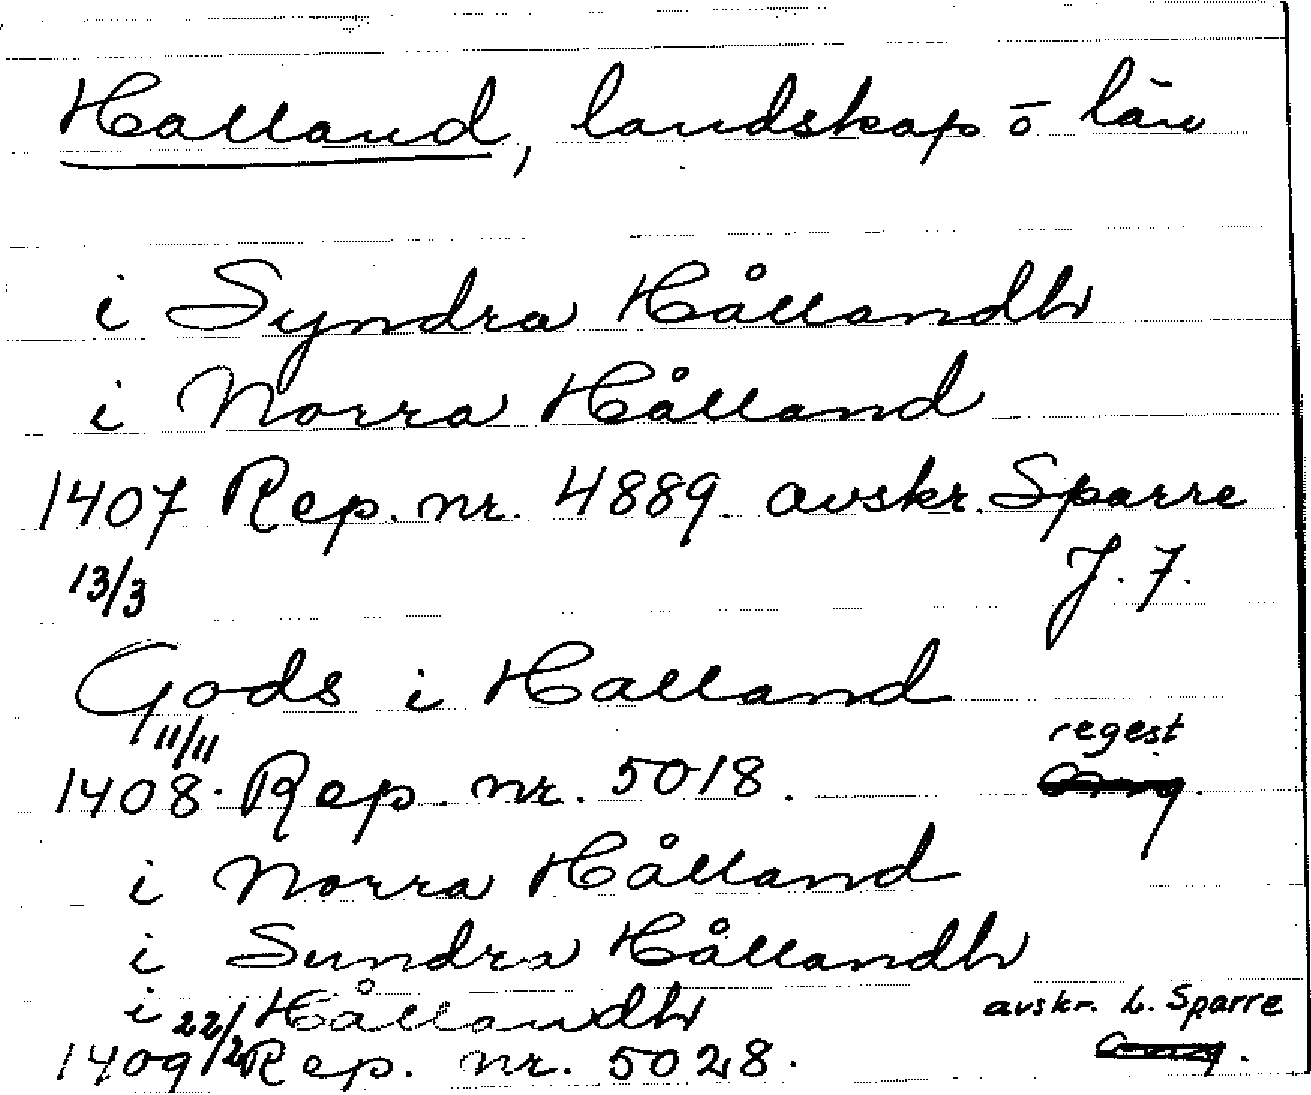 Halland, landskap o län
i Syndra Hållandh
i Norra Hålland
1407 Rep. nr. 4889. avskr. Sparre
13/3 J. 7.
Gods i Halland
11/11 regest
1408. Rep. nr. 5018.
i Norra Hålland
i Sundra Hållandh
i Hållandh avskr. L. Sparre
22/2
1409 Rep. nr. 5028.